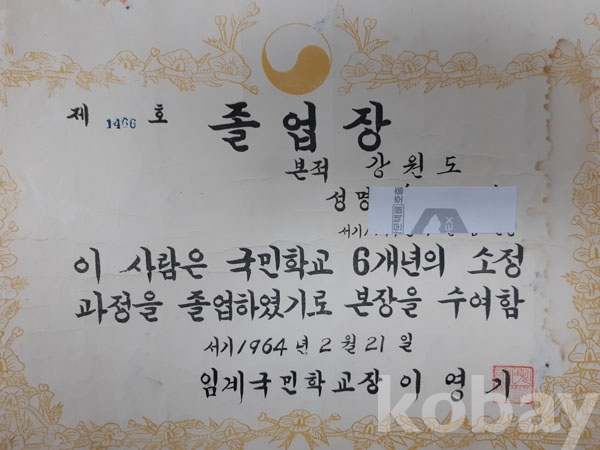 제 1466 호
졸업장
본적 강원도
성명
서기
이 사람은 국민학교 6개년의 소정
과정을 졸업하였기로 본장을 수여함
서기 1964년 2월 21일
임계국민학교장 이영기
kobay